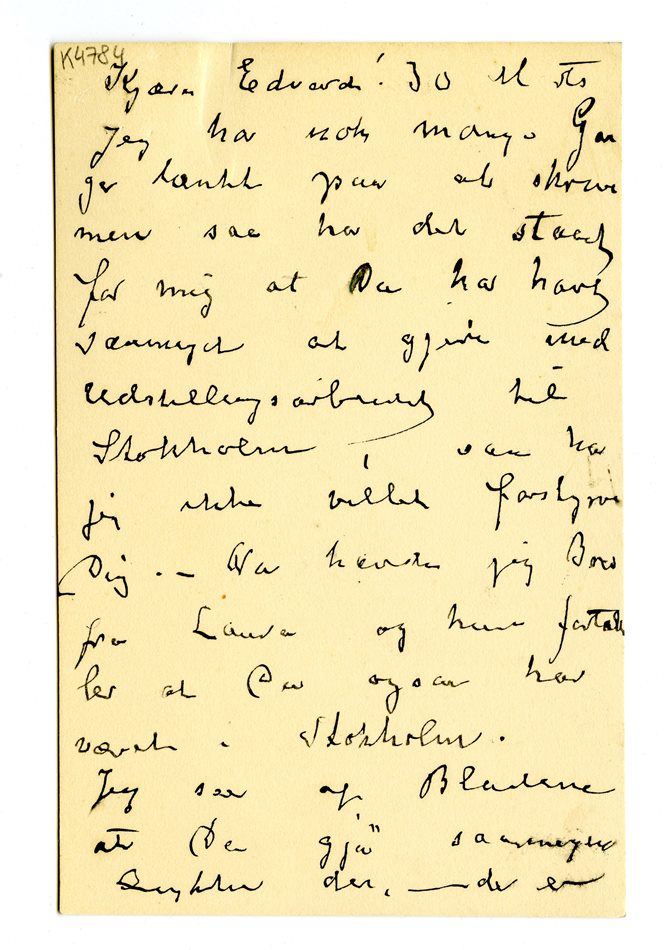 K4784
Kjære Edvard! 30
Jeg har nok mange Gan
ger tænkt paa at skrive
men saa har det staaet
for mig at Du har havt
saameget at gjøre med
Udstillingsarbeidet til
Stokholm, saa har
jeg ikke villet forstyrre
Dig. – Nu havde jeg Brev
fra Laura og hun fortæl
ler at Du ogsaa har
været i Stokholm.
Jeg saa af Bladene
at Du gjør saameget
Lykke der, – der er